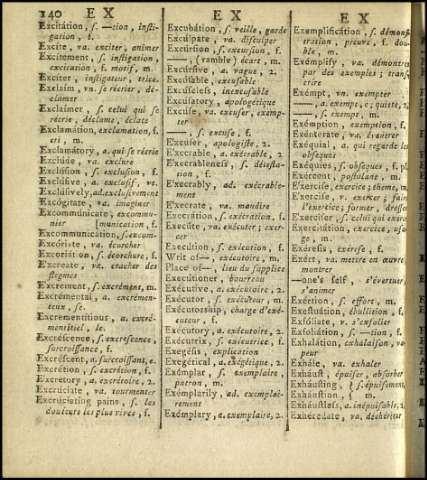 140 EX
EX
EX
Excitátion, ſ. —tion, inſti-
gation, f.
Excíte, va. exciter, animer
Excítement, ſ. inſtigation,
excitation, f. motif, m.
Excíter, inſtigateur, trice.
Exclaím, vn. ſe récrier, dé-
clamer
Exclaímer, ſ. celui qui ſe
récrie, déclame, éclate
Exclamátion, exclamation, f.
cri, m.
Exclámatory, a. qui ſe récrie
Exclúde, va. exclure
Exclúſion, ſ. excluſion, f.
Exclúſive, a. excluſif, ve.
Exclúſively, ad. excluſivement
Excógitate, va. imaginer
Excommúnicate, excommu-
nier [munication, f.
Excommunicátion, ſ. excom-
Excóriate, va. écorcher
Excoriátion, ſ. écorchure, f.
Excreate, va. cracher des
flegmes
Excrement, ſ. excrément, m.
Excreméntal, a. excrémen-
teux, ſe.
Excrementítious, a. excré-
mentitiel, le.
Excréſcence, ſ. excreſcence
ſurcroiſſance, f.
Excréſcent, a. ſurcroiſſant, e.
Excrétion, ſ. excrétion, f.
Excretory, a. excrétoire, 2.
Excrúciate, va. tourmenter
Excrúciating pains, ſ. les
douleurs les plus vives, f.
Excubátion, ſ. veille, garde
Excúlpate, va. diſculper
Excúrſion, ſ. excurſion, f.
—, (ramble) écart, m.
Excúrſive, a. vague, 2.
Excúſable, excuſable
Excúſeleſs, inexcuſable
Excúſatory, apologétique
Excúſe, va. excuſer, exemp-
ter
—, ſ. excuſe, f.
Excuſer, apologiſte, 2.
Execrable, a. exécrable, 2.
Execrableneſs, ſ. déteſta-
tion, f.
Execrably, ad. exécrable-
ment
Execrate, va. maudire
Execrátion, ſ. exécration, f.
Execúte, va. exécuter; exer-
cer
Execútion, ſ. exécution, f.
Writ of—, exécutoire, m.
Place of—, lieu du ſupplice
Execútioner, bourreau
Exécutive, a. exécutoire, 2.
Exécutor, ſ. exécuteur, m.
Exécutorship, charge d'exé-
cuteur, f.
Exécutory, a. exécutoire, 2.
Exécutrix, ſ. exécutrice, f.
Exegeſis, explication
Exegétical, a. exégétique, 2.
Exémplar, ſ. exemplaire,
patron, m.
Exémplarily, ad. exemplai-
rement
Exémplary, a. exemplaire, 2.
Exemplificátion, ſ. démonſ-
tration, preuve, f. dou-
ble, m.
Exémplify, va. démontrer
par des exemples; tranſ-
crire
Exémpt, vn. exempter
—, a. exempt, e; quitte, 2.
—, ſ. exempt, m.
Exémption, ſ. exemption, f.
Exénterate, va. éventrer
Exéquial, a. qui regarde les
obſeques
Exéquies, ſ. obſeques, f. pl.
Exércent, poſtulant, m.
Exerciſe, exercice; thême, m.
Exerciſe, v. exercer; faire
l'exercice; former, dreſſer
Exerciſer, ſ. celui qui exerce
Exercitátion, exercice, uſa-
ge, m.
Exéreſis, exereſe, f.
Exért, va. mettre en œuvre,
montrer
—one's ſelf, s'évertuer,
s'animer
Exértion, ſ. effort, m.
Exeſtuátion, ébullition, f.
Exfóliate, v. s'exfolier
Exfoliátion, ſ. —tion, f.
Exhalátion, exhalaiſon, va-
peur
Exhále, va. exhaler
Exháuſt, épuiſer, abſorber
Exháuſting, } ſ. épuiſement,
Exháuſtion, } m.
Exháuſtleſs, a. inépuiſable, 2.
Exhéredate, va. déshériter